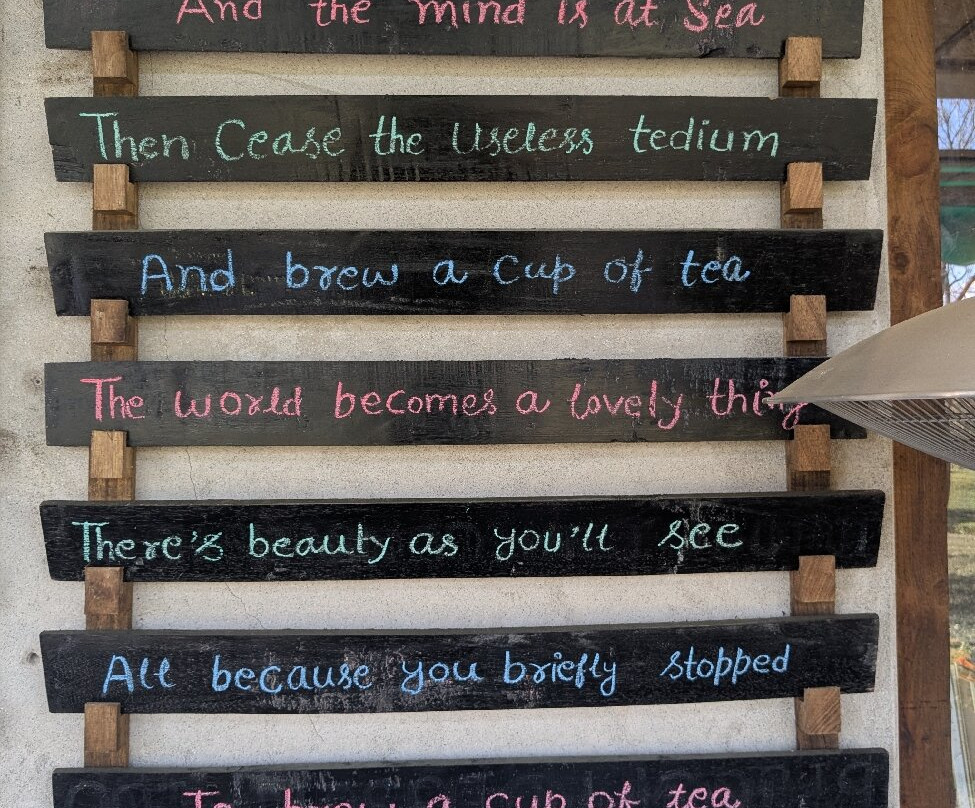 And the mind is at Sea
Then Cease the Useless tedium
And brew a Cup of tea
The world becomes a lovely thing
There's beauty as you'll see
All because you briefly stopped
To brew a cup of tea